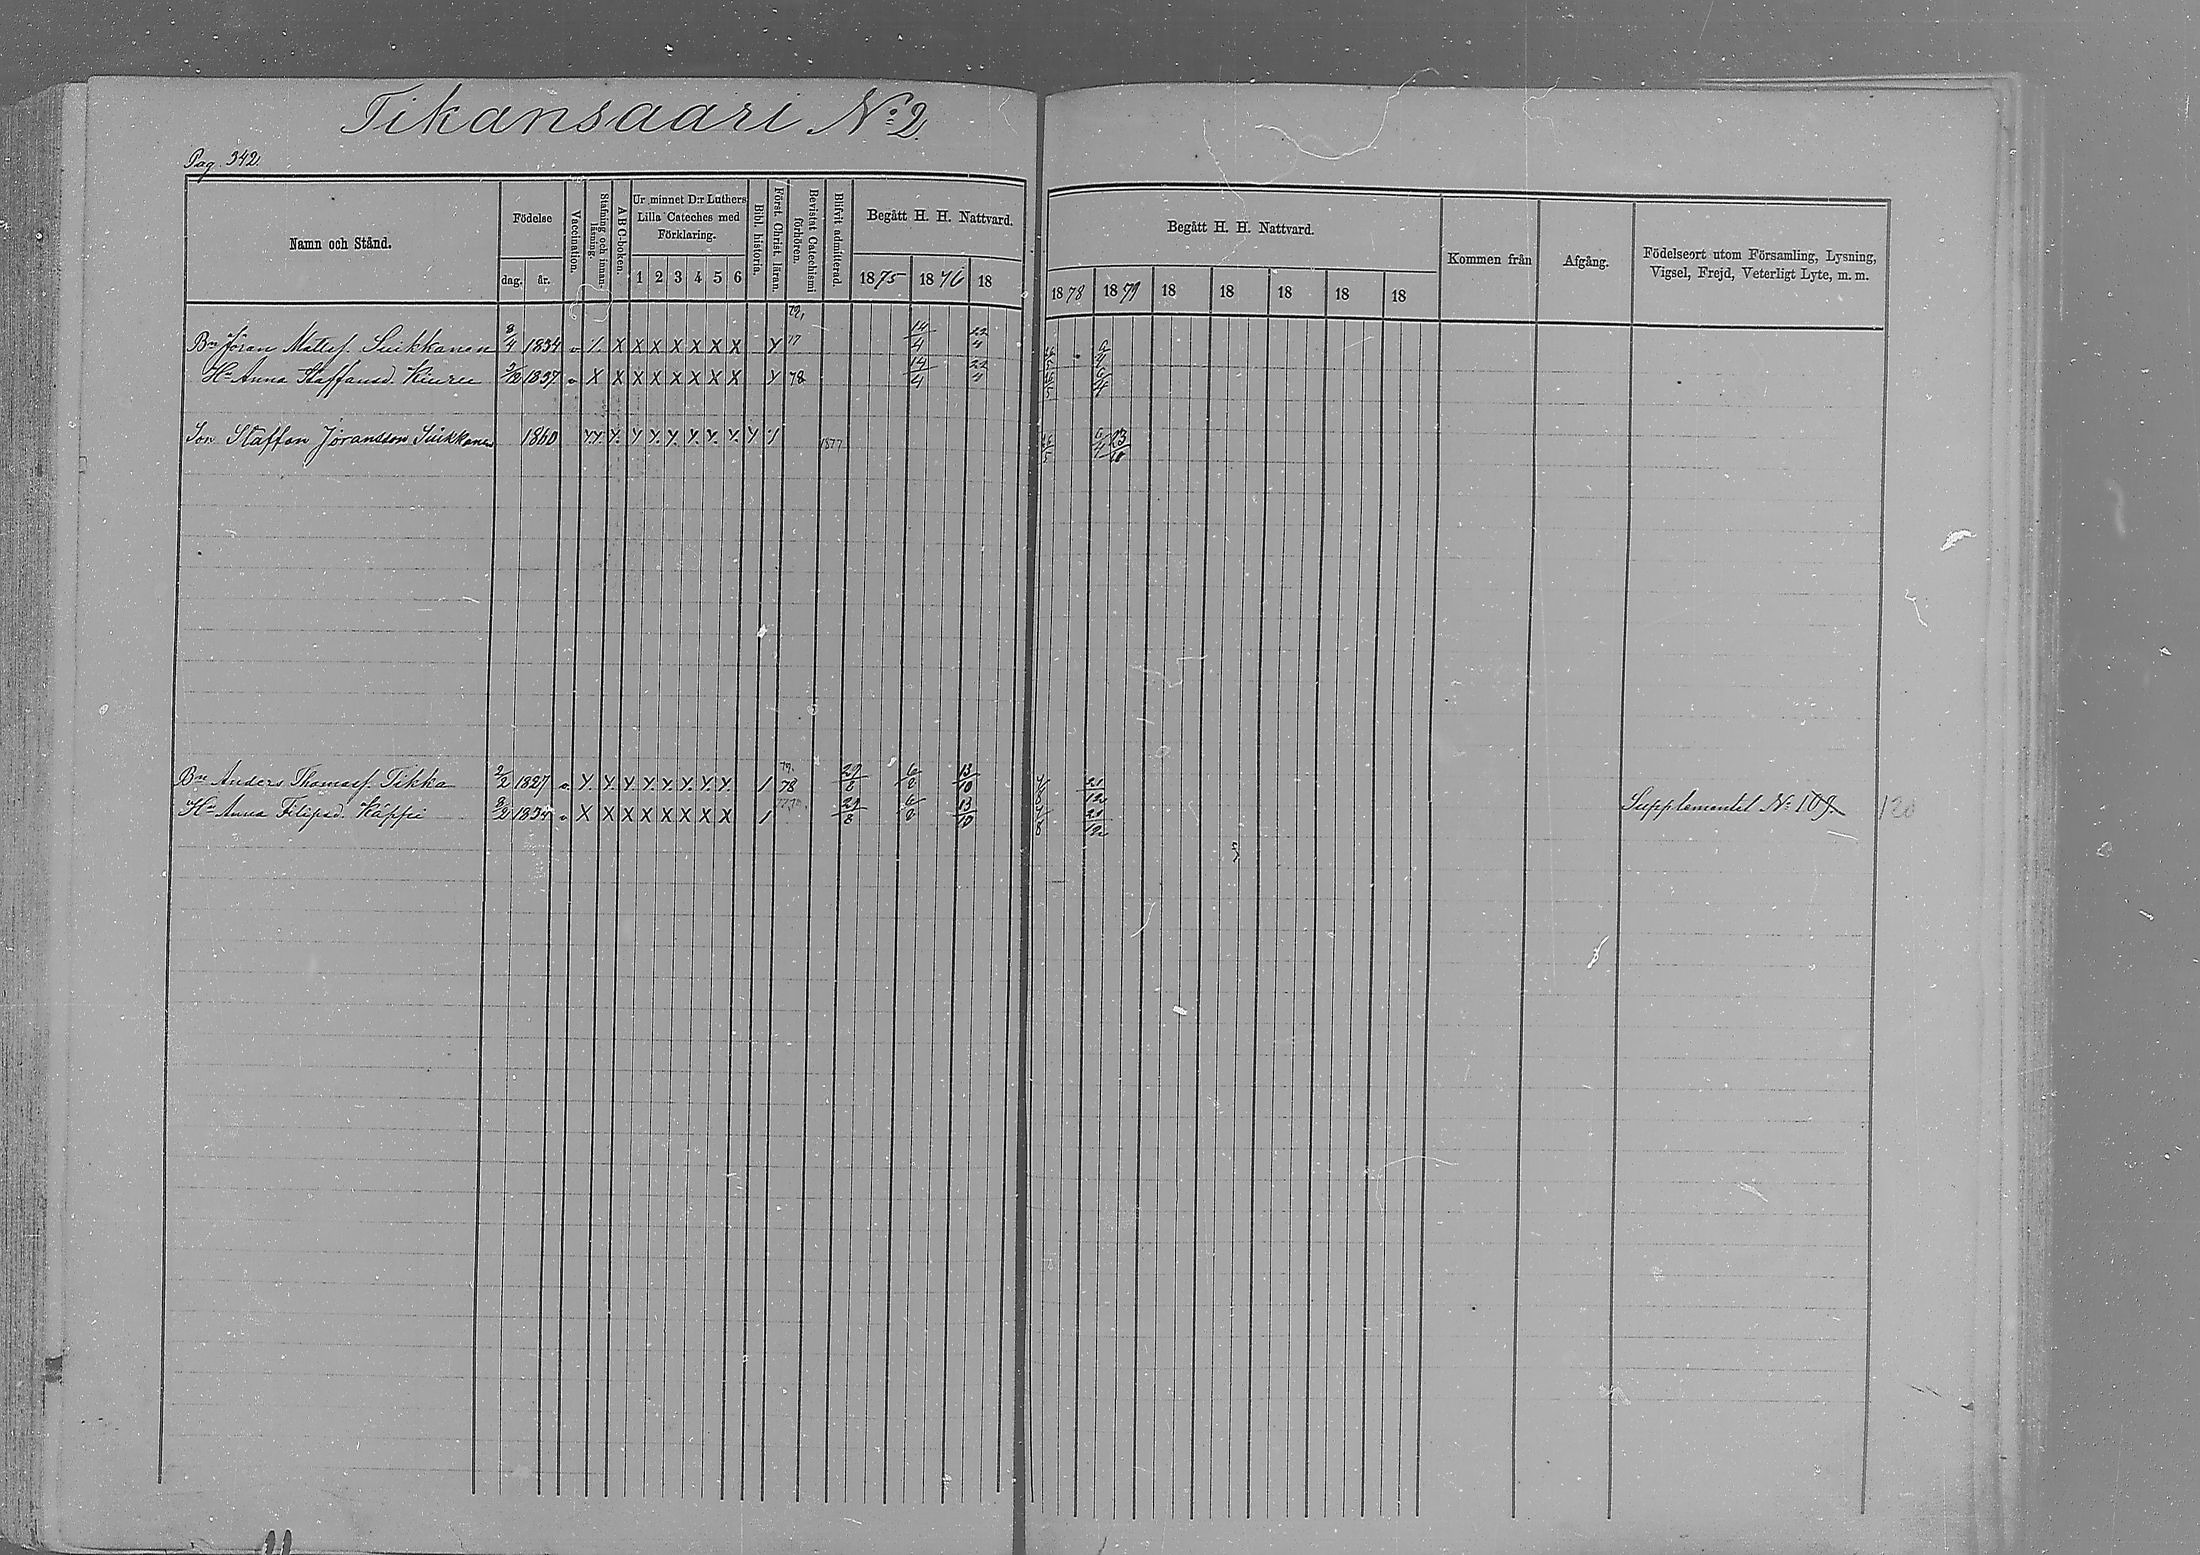 Tikansaari No 2.
Pag. 342.
Namn och Stånd.
Födelse
dag. år.
Vaccination.
Stafning och innanläsning.
A B C-boken.
Ur minnet D:r Luthers Lilla Cateches med Förklaring.
1 2 3 4 5 6
Bibl. historia.
Först. Christ. läran.
Bevistat Catechismi förhören.
Blifvit admitterad.
Begått H. H. Nattvard.
1875 1876 18
Begått H. H. Nattvard.
1878 1879 18 18 18 18 18
Kommen från
Afgång.
Födelseort utom Församling, Lysning, Vigsel, Frejd, Veterligt Lyte, m. m.
Bn Jöran Mattsf. Suikkanen 8/4 1834 X X X X X X X Y 77 14/4 22/4 6/4
Hu Anna Staffansd. Kiuru 1837 X X X X X X X X Y 78 14/4 22/4 6/4
Son Staffan Jöransson Suikkanen 1860 1877 6/4 23/10
Bn Anders Thomasf. Tikka 2/2 1827 79. 78 29/8 6/8 13/10 21/12
Hu Anna Filipsd. Käppi 1834 X X X X X X X X X 1 29/8 6/8 13/10 21/12 Supplementet No 109. 120